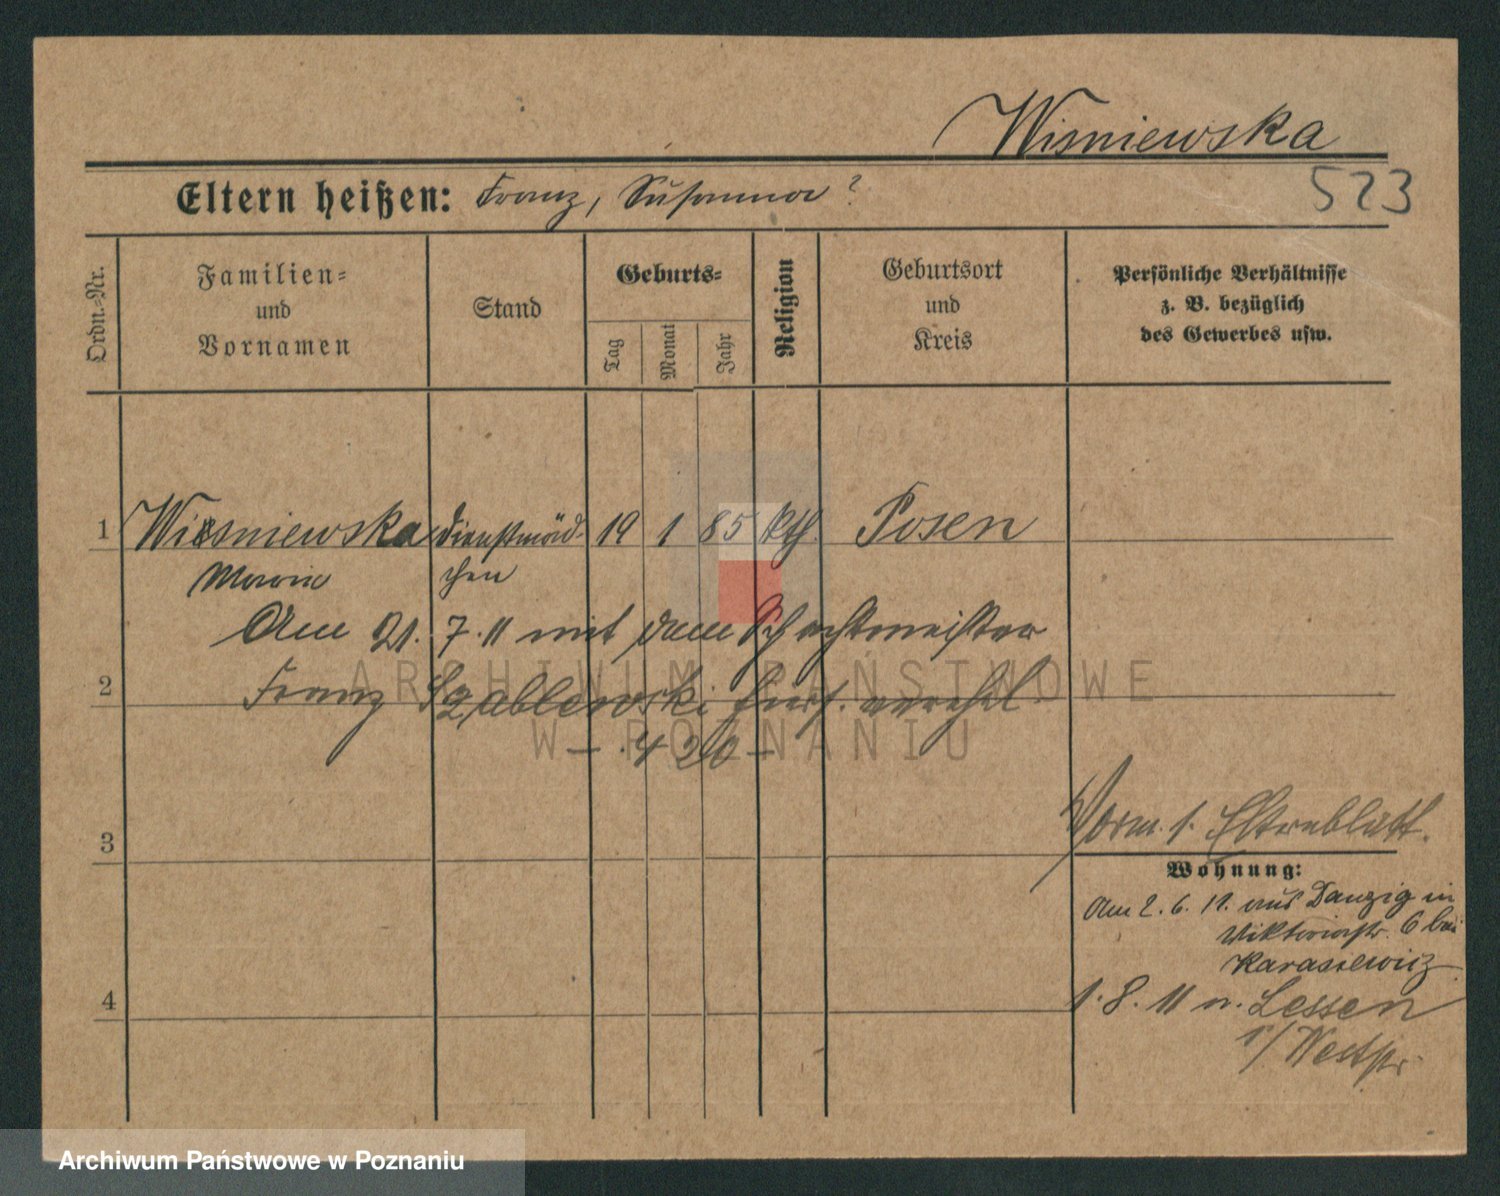 Wisniewska
Eltern heißen: Franz, Susanna ?
523
Ordn.-Nr.
Familien-
und
Vornamen
Stand
Geburts-
Tag
Monat
Jahr
Religion
Geburtsort
und
Kreis
Persönliche Verhältnisse
z. B. bezüglich
des Gewerbes usw.
1 Wisniewska Dienstmäd- 19 1 85 kth. Posen
Marie chen
Am 21. 7. 11 mit dem Schachtmeister
2 Franz Szablewski hier verehl.
- 420 -
ARCHIWUM PAŃSTWOWE
W POZNANIU
3
Vorm. s. Elternblatt.
Wohnung:
Am 2. 6. 11. aus Danzig in
Viktoriastr. 6 bei
Karasiewicz
4
1. 8. 11 n. Lessen
i/ Westpr.
Archiwum Państwowe w Poznaniu